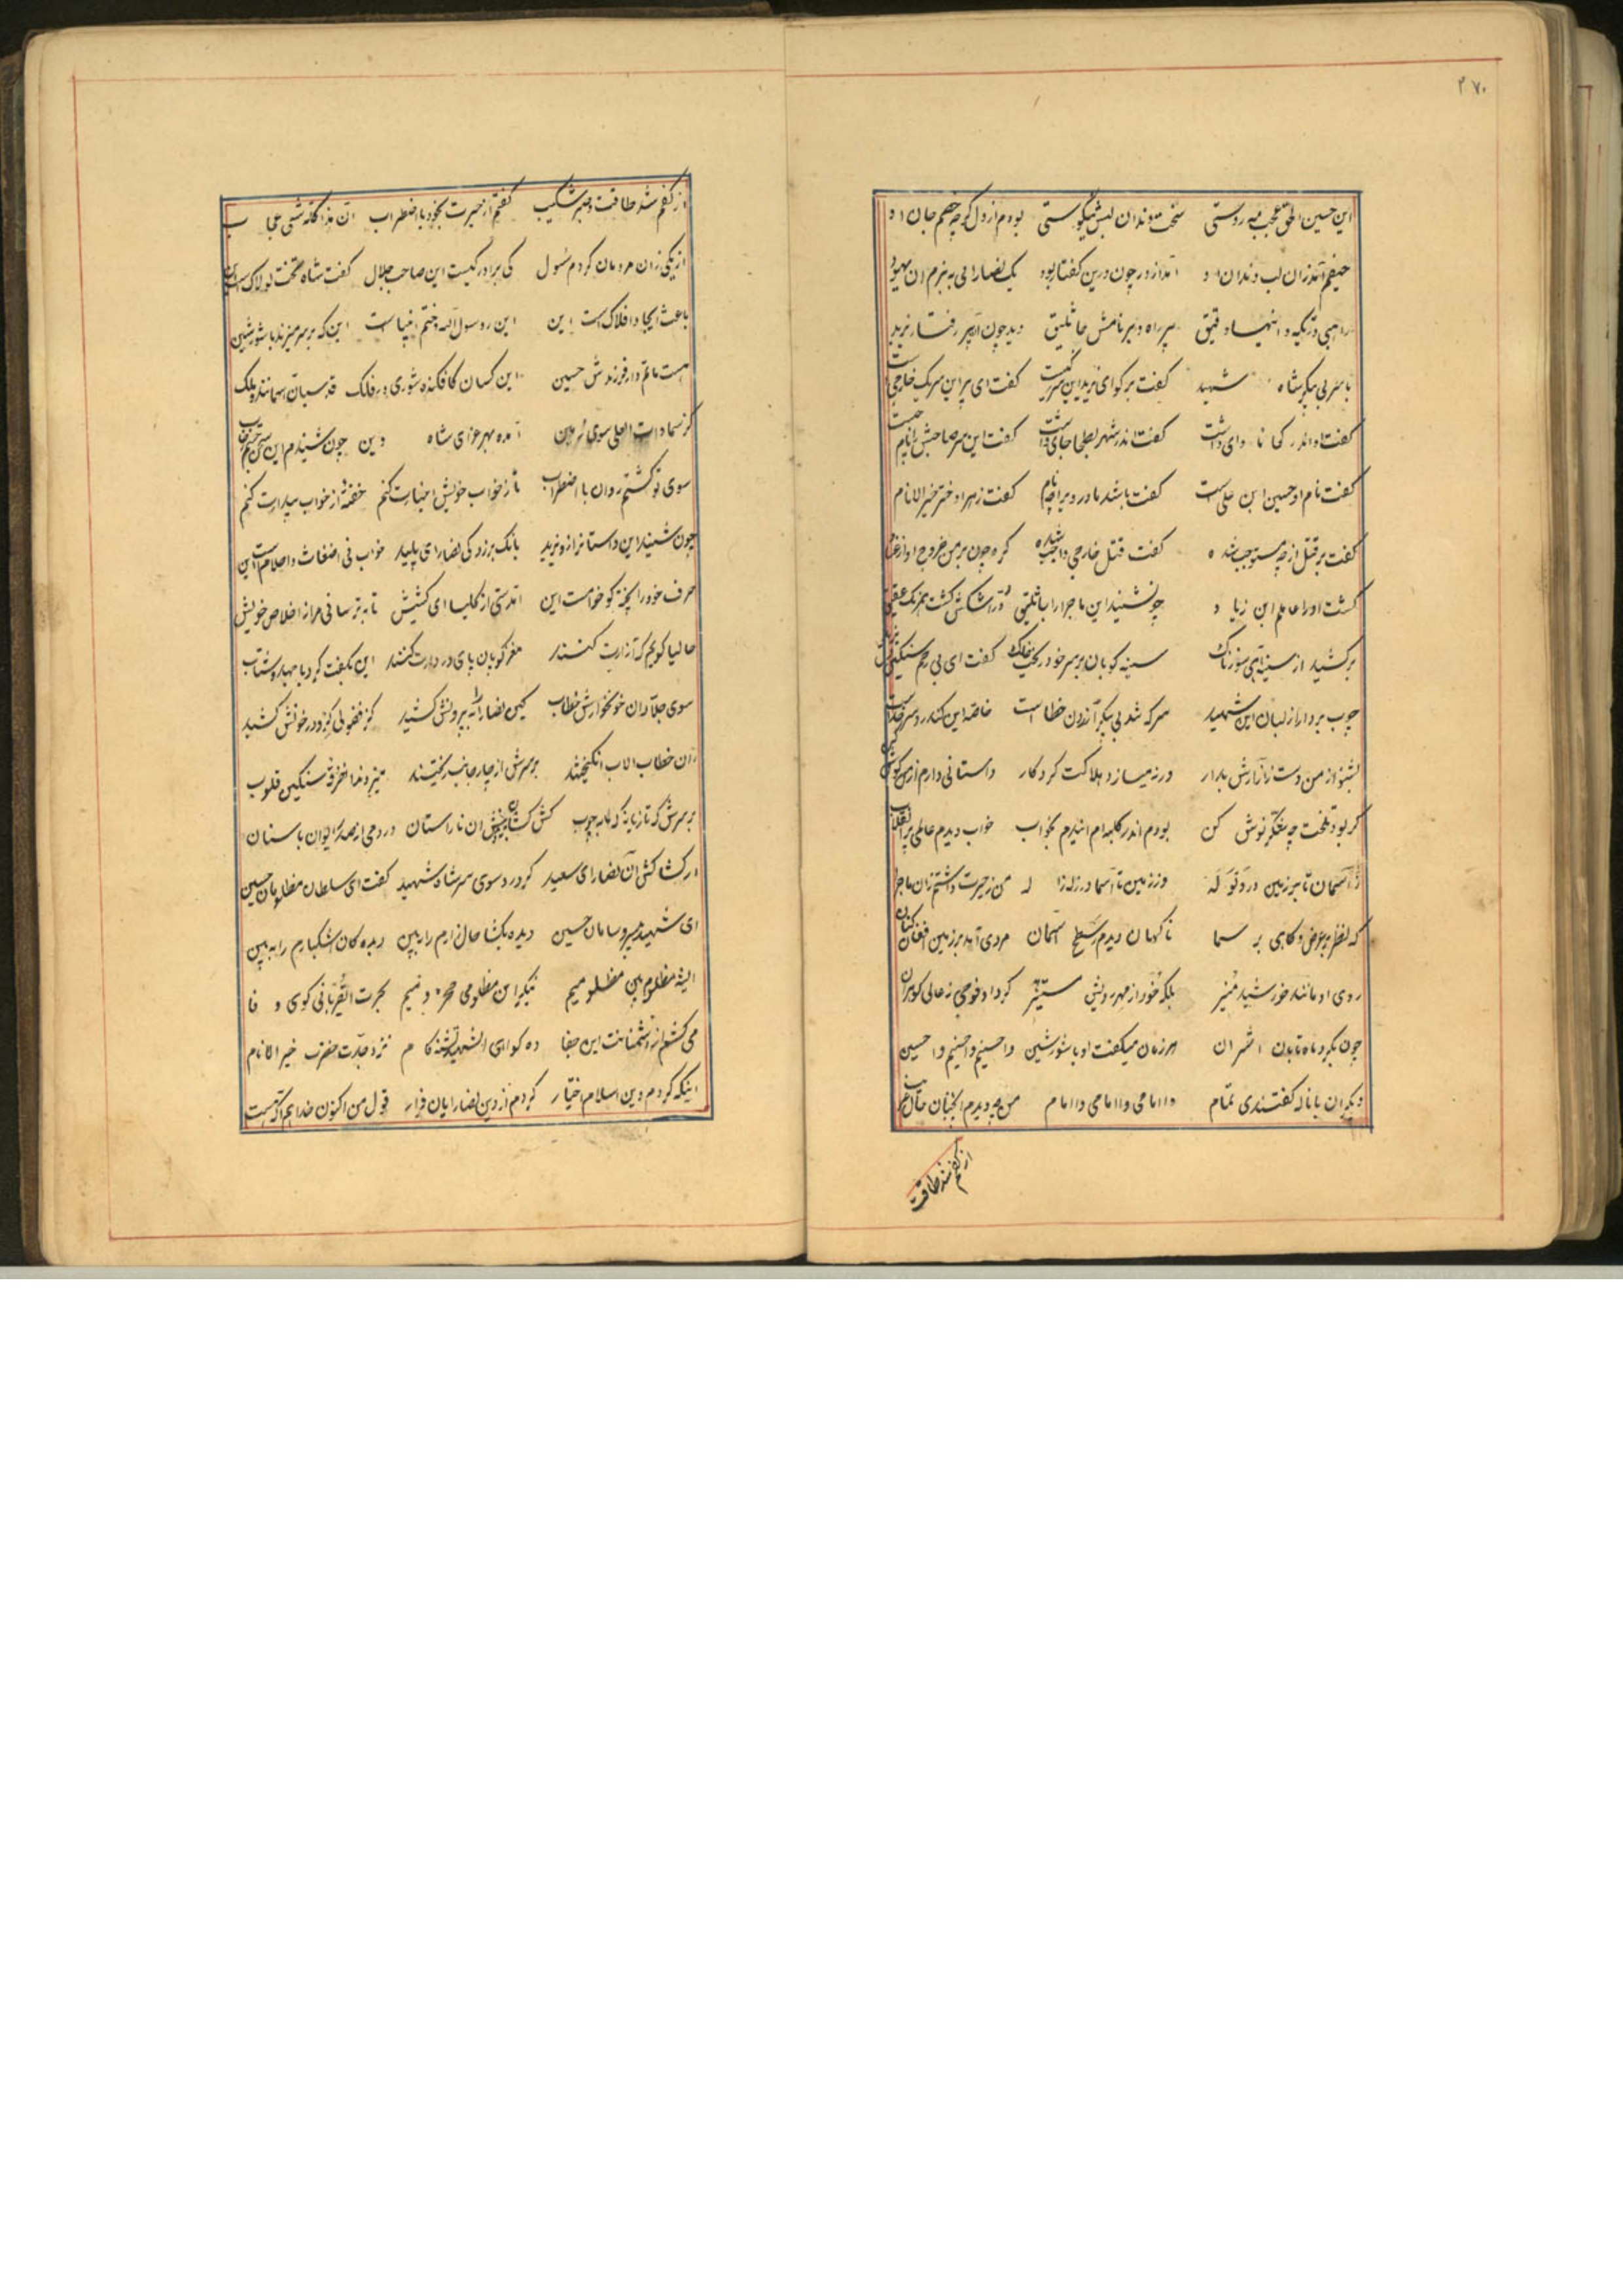 ۲۷۰
این حسین الحق عجب مه روستی سخت دندان لبش نیکوستی بودم از دل کرچه خصم جان او
حیفم آمد زان لب و دندان او آمد از در چون درین کفتار بود یک نصارایی به بزم ان یهود
راهبی در تکیه و انتهاد قیق پیر راه دیر نامش جاثلیق دید چون آن پیر رفتار یزید
با سر بی پیکر شاه شهید کفت بر کو ای یزید این سر ز کیست کفت ای پیر این سر یک خارجی است
کفت او اندر کجا ماوای داشت کفت اندر شهر بطحا جای داشت کفت این سر صاحبش را نام چیست
کفت نام او حسین ابن علی است کفت باشد مادر ویرا چه نام کفت زهرا دختر خیر الانام
کفت بر قتل از چه مستوجب شده کفت قتل خارجی واجب شده کرد چون بر من خروج او از عراق
کشت او را عاملم ابن زیاد چون شنید این ماجرا را جاثلیق در اشکش کشت همرنک عقیق
بر کشید از سینه آهی سوزناک سینه کوبان بر سر خود ریخت خاک کفت ای بی رحم سنکین دل
چوب بردار از لبان این شهید سر که شد بی پیکر آزردن خطا است خاصه این کاندر سر
بشنو از من دست از آزارش بدار ورنه میسازد هلاکت کردکار داستانی دارم از من کوش کن
کر بود تلخت چه شکر نوش کن بودم اندر کلبه ام اندرم بخواب خواب دیدم عالمی پر انقلاب
ز آسمان تا بر زمین در ولوله وز زمین تا آسما در زلزله من ز حیرت داشتم زان ماجرا
که نظر بر ارض و کاهی بر سما ناکهان دیدم ز سطح آسمان مردی آمد بر زمین افغان کنان
روی او مانند خورشید منیر بلکه خور از مهر رویش مستنیر کرد او فوجی ز عالی کوهران
چون بکرد ماه تابان اختران هر زمان میکفت او با شور شین وا حسینم وا حسینم وا حسین
دیکران با ناله کفتندی تمام وا امامی وا امامی وا امام من چه دیدم انچنان حال غریب
از کفم شد طاقت
از کفم شد طاقت و صبر و شکیب کفتم از حیرت بخود با اضطراب ان هذا کانه شیئ عجاب
از یکی زان مردمان کردم سئول کی برادر کیست این صاحب جلال کفت شاه تخت لولاک است این
باعث ایجاد افلاک است این این رسول اله و ختم انبیا است این که بر سر میزند با شور شین
هست ماتم دار فرزندش حسین این کسان کافکنده شوری در فلک قدسیان آسمانند و ملک
کز سماوات العلی سوی زمین آمده بهر عزای شاه دین چون شنیدم این سخن
سوی تو کشتم روان با اضطراب تا ز خواب خویش اخبارت کنم خفته از خواب بیدارت کنم
چون شنید این داستانرا زو یزید بانک برزد کی نصارای پلید خواب نی اضغاث و احلام است این
حرف خود را پخته کو خام است این آمدستی از کلیسا ای کشیش تا بترسانی مرا ز اخلاص خویش
حالیا کویم که آزارت کنند مغز کوبان پای در دارت کنند این بکفت کرد با صد شتاب
سوی جلادان خونخوارش خطاب کین نصارا را به بیرونش کشید کز فضولی کرد در خونش کشید
زان خطاب الاب انکیختند بر سرش از چار جانب ریختند میزدند آنفرقه سنکین قلوب
بر سرش که تازیانه که به چوب کش کشان ان ناراستان در دمی از صدر ایوان باستان
در کشاکش آن نصارای سعید کرد رو سوی سر شاه شهید کفت ای سلطان مظلومان حسین
ای شهید بی سر و سامان حسین دیده بکشا حال زارم را ببین دیده کان اشکبارم را ببین
ای شه مظلوم بین مظلومیم بنکر این مظلومی محرومیم
می کشم از دشمنانت این جفا ده کواهی ای شهید تشنه کام نزد جدت حضرت خیر الانام
اینکه کردم دین اسلام اختیار کردم از دین نصارایان فرار قول من اکنون